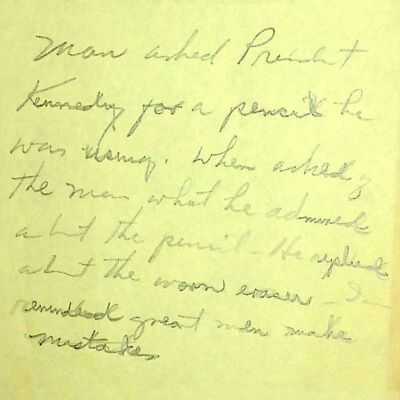 Man asked President
Kennedy for a pencil he
was using. When asked
the man what he admired
about the pencil - He replied
about the worn eraser - I am
reminded great men make
mistakes